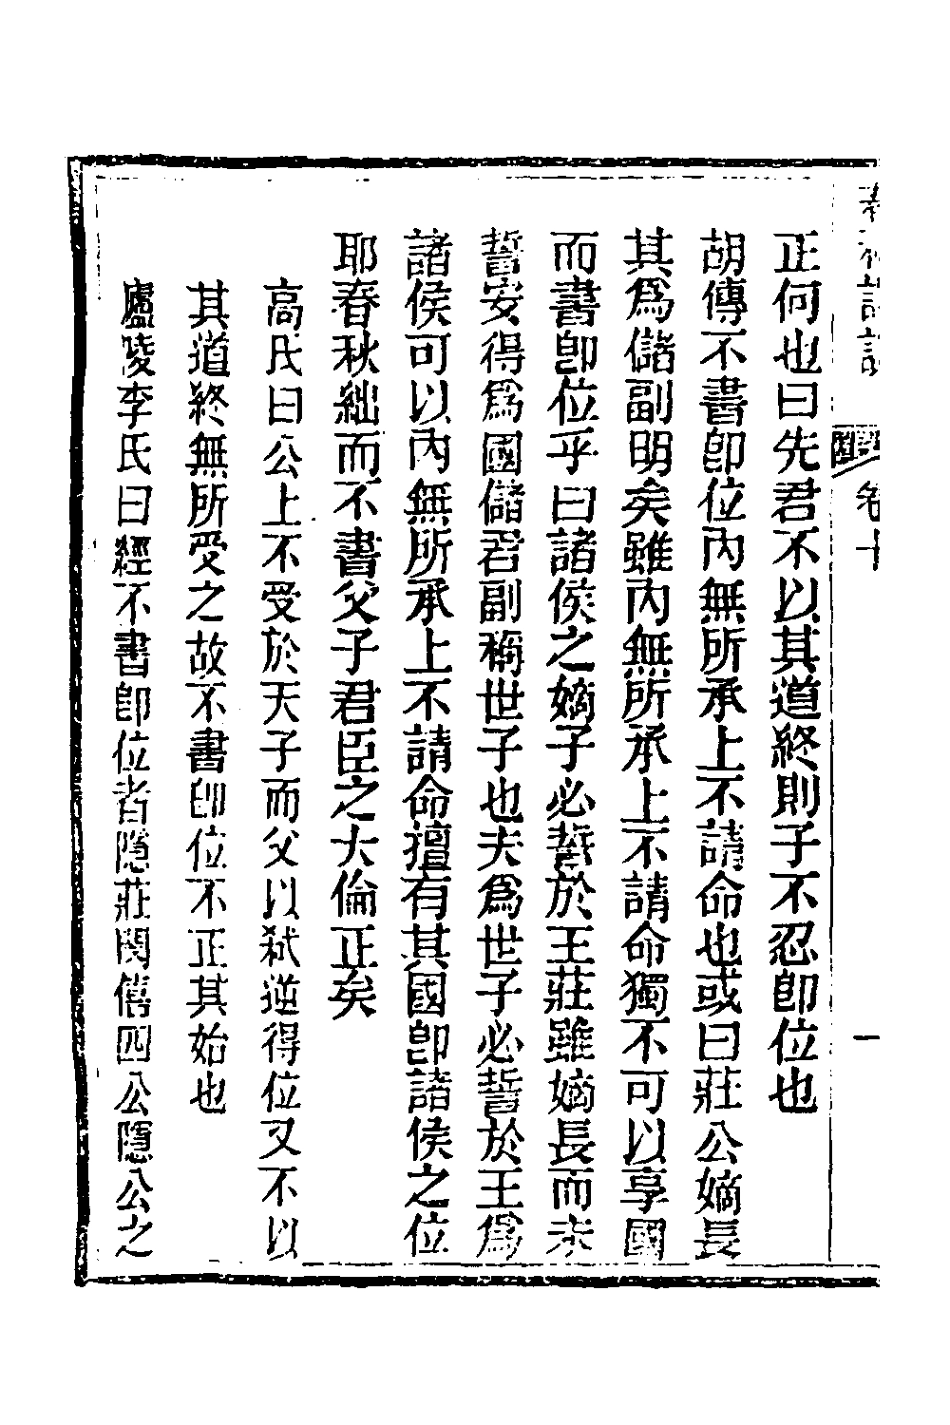 卷十
一
正何也曰先君不以其道終則子不忍卽位也
胡傳不書卽位內無所承上不請命也或曰莊公嫡長
其爲儲副明矣雖內無所承上不請命獨不可以享國
而書卽位乎曰諸侯之嫡子必誓於王莊雖嫡長而未
誓安得爲國儲君副稱世子也夫爲世子必誓於王爲
諸侯可以內無所承上不請命擅有其國卽諸侯之位
耶春秋絀而不書父子君臣之大倫正矣
高氏曰公上不受於天子而父以弒逆得位又不以
其道終無所受之故不書卽位不正其始也
廬陵李氏曰經不書卽位者隱莊閔僖四公隱公之